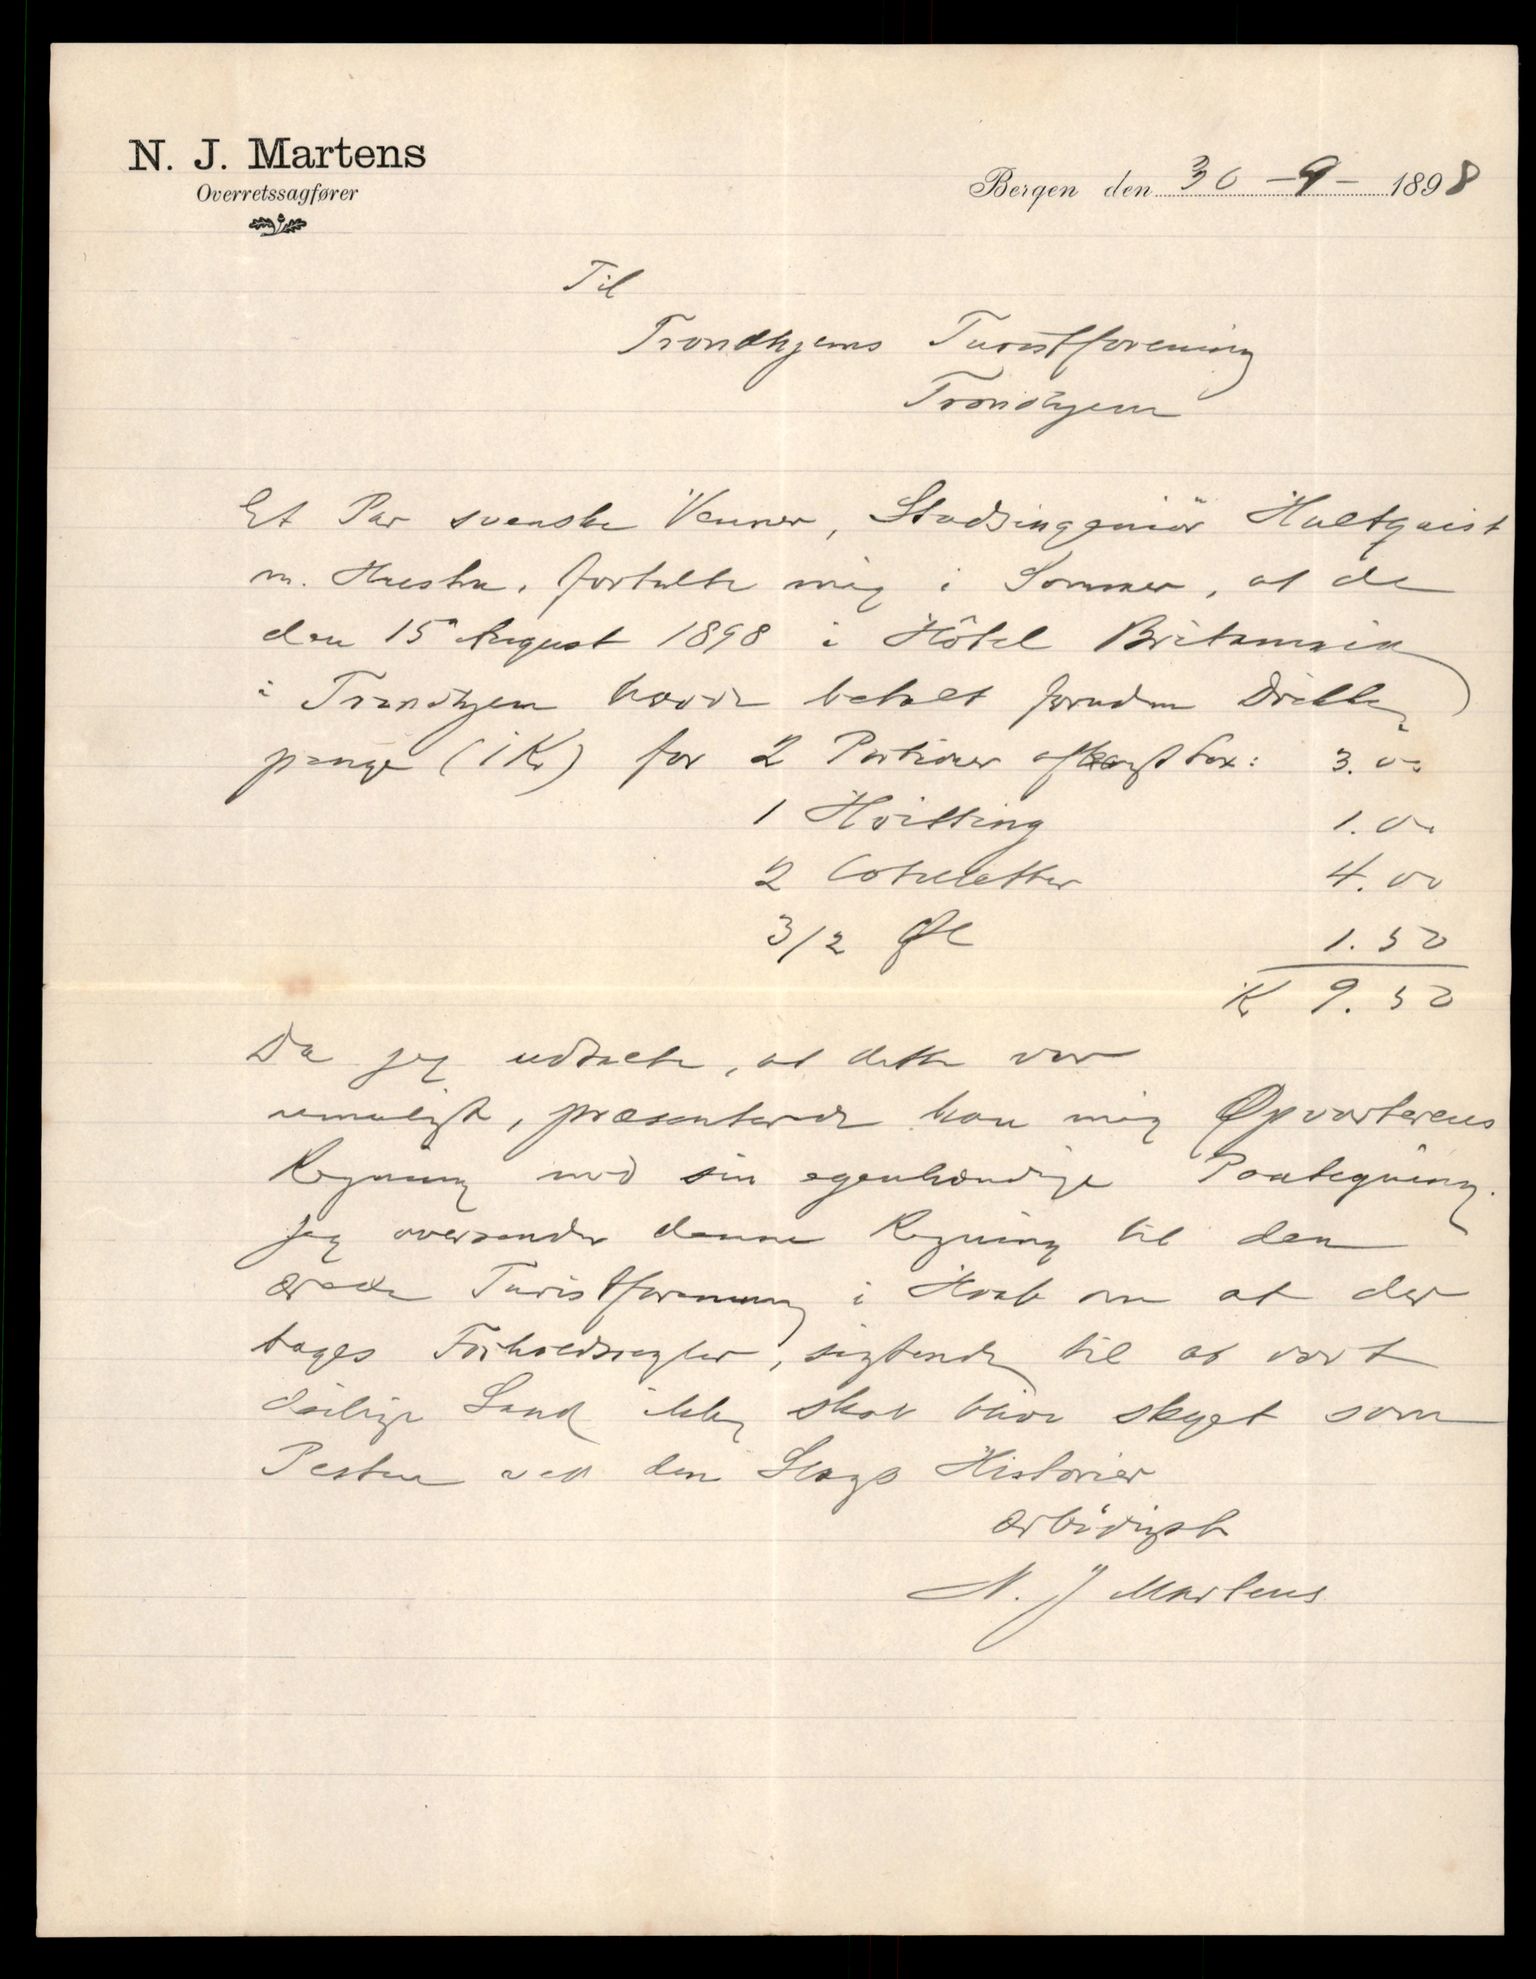 N. J. Martens
Overretssagfører
Bergen den 30 - 9 - 1898
Til
Trondhjems Turistforening
Trondhjem
Et Par svenske Venner, Stadsingeniör Hultquist
m. Hustru, fortalte mig i Sommer, at de
den 15 August 1898 i Hôtel Britannia
i Trondhjem havde betalt foruden Drikke-
penge (1 Kr) for 2 Portioner kogt Lax: 3.00
1 Hvitting 1.00
2 Coteletter 4.00
3/2 Øl 1.50
K 9.50
Da jeg udtalte, at dette var
umuligt, præsenterede han mig Opvarterens
Regning med sin egenhændige Paategning.
Jeg oversender denne Regning til den
ærede Turistforening i Haab om at der
tages Forholdsregler, sigtende til at vort
deilige Land ikke skal blive skyet som
Pesten ved den Slags Historier
ærbödigst
N. J Martens